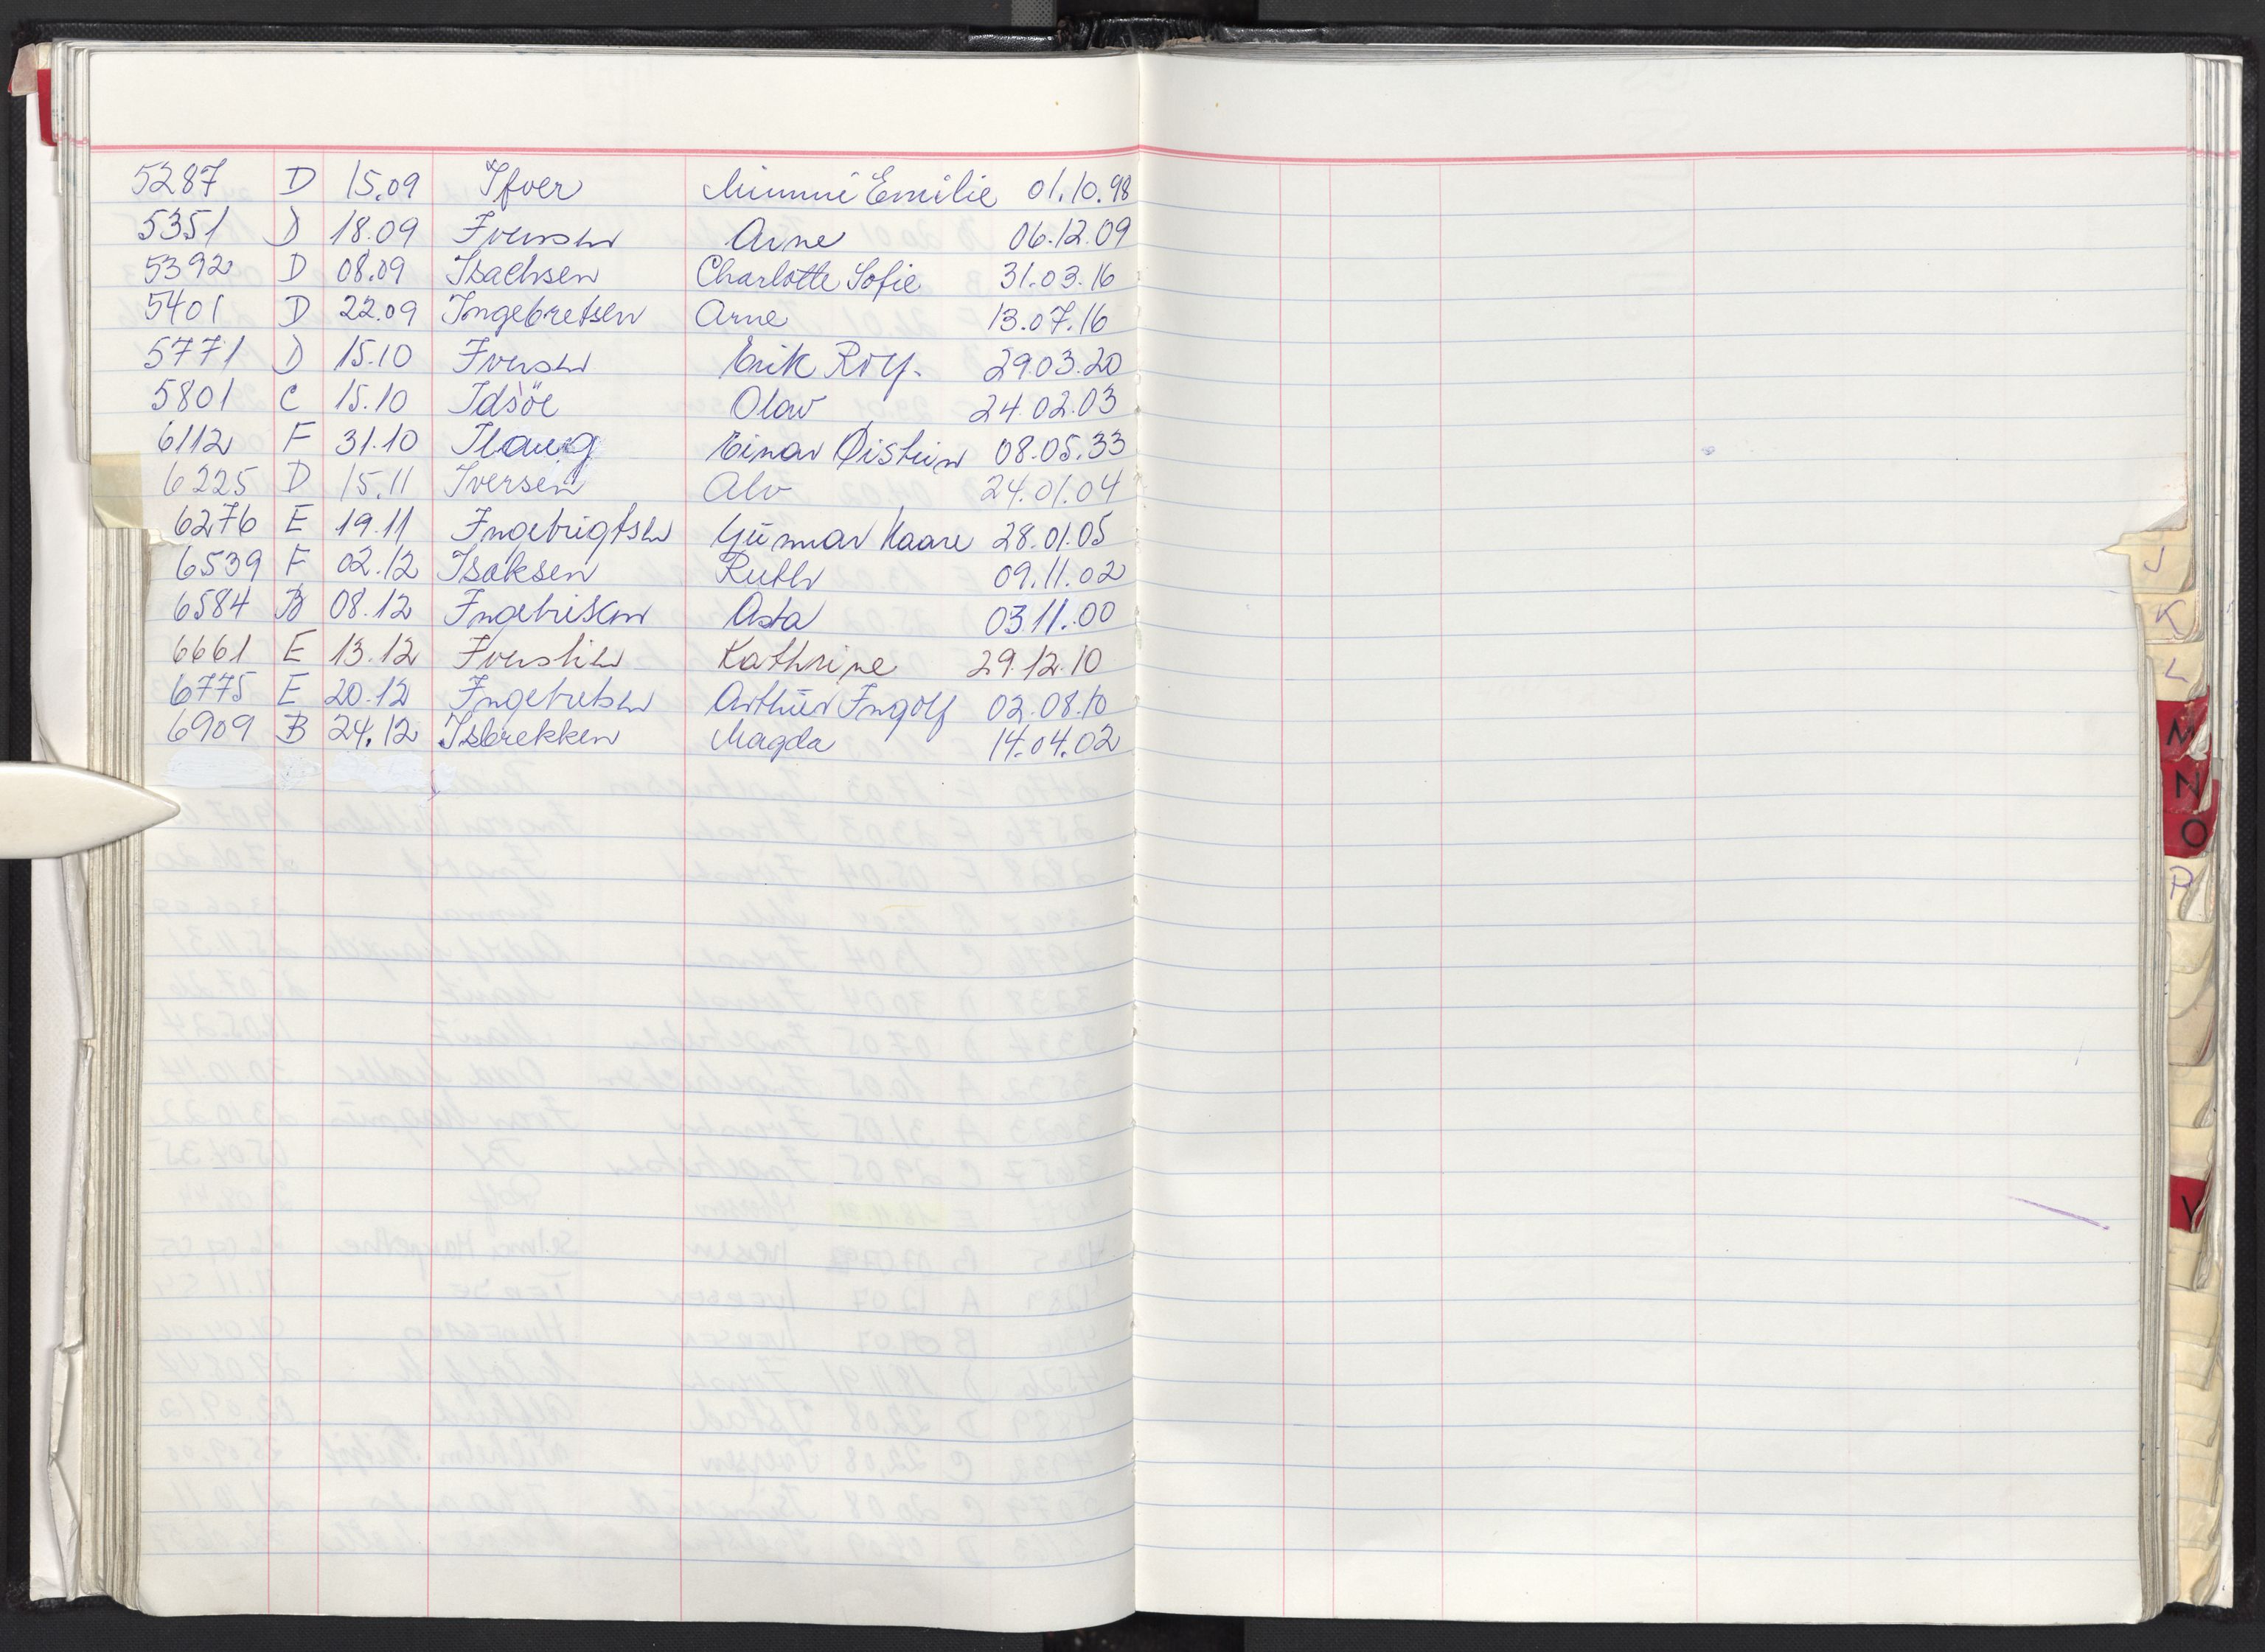 5287 D 15.09 Ifver Mimmi Emilie 01.10.98
5351 D 18.09 Iversen Arne 06.12.09
5392 D 08.09 Isachsen Charlotte Sofie 31.03.16
5401 D 22.09 Ingebretsen Arne 13.07.16
5771 D 15.10 Iversen Erik Rolf 29.03.20
5801 C 15.10 Idsöe Olav 24.02.03
6112 F 31.10 Ilaug Einar Øistein 08.05.33
6225 D 15.11 Iversen Alv 24.01.04
6276 E 19.11 Ingebrigtsen Gunnar Kaare 28.01.05
6539 F 02.12 Isaksen Ruth 09.11.02
6584 B 08.12 Ingebriksen Asta 03.11.00
6661 E 13.12 Iverslien Kathrine 29.12.10
6775 E 20.12 Ingebretsen Arthur Ingolf 02.08.10
6909 B 24.12 Isbrekken Magda 14.04.02
J
K
L
M
N
O
P
V